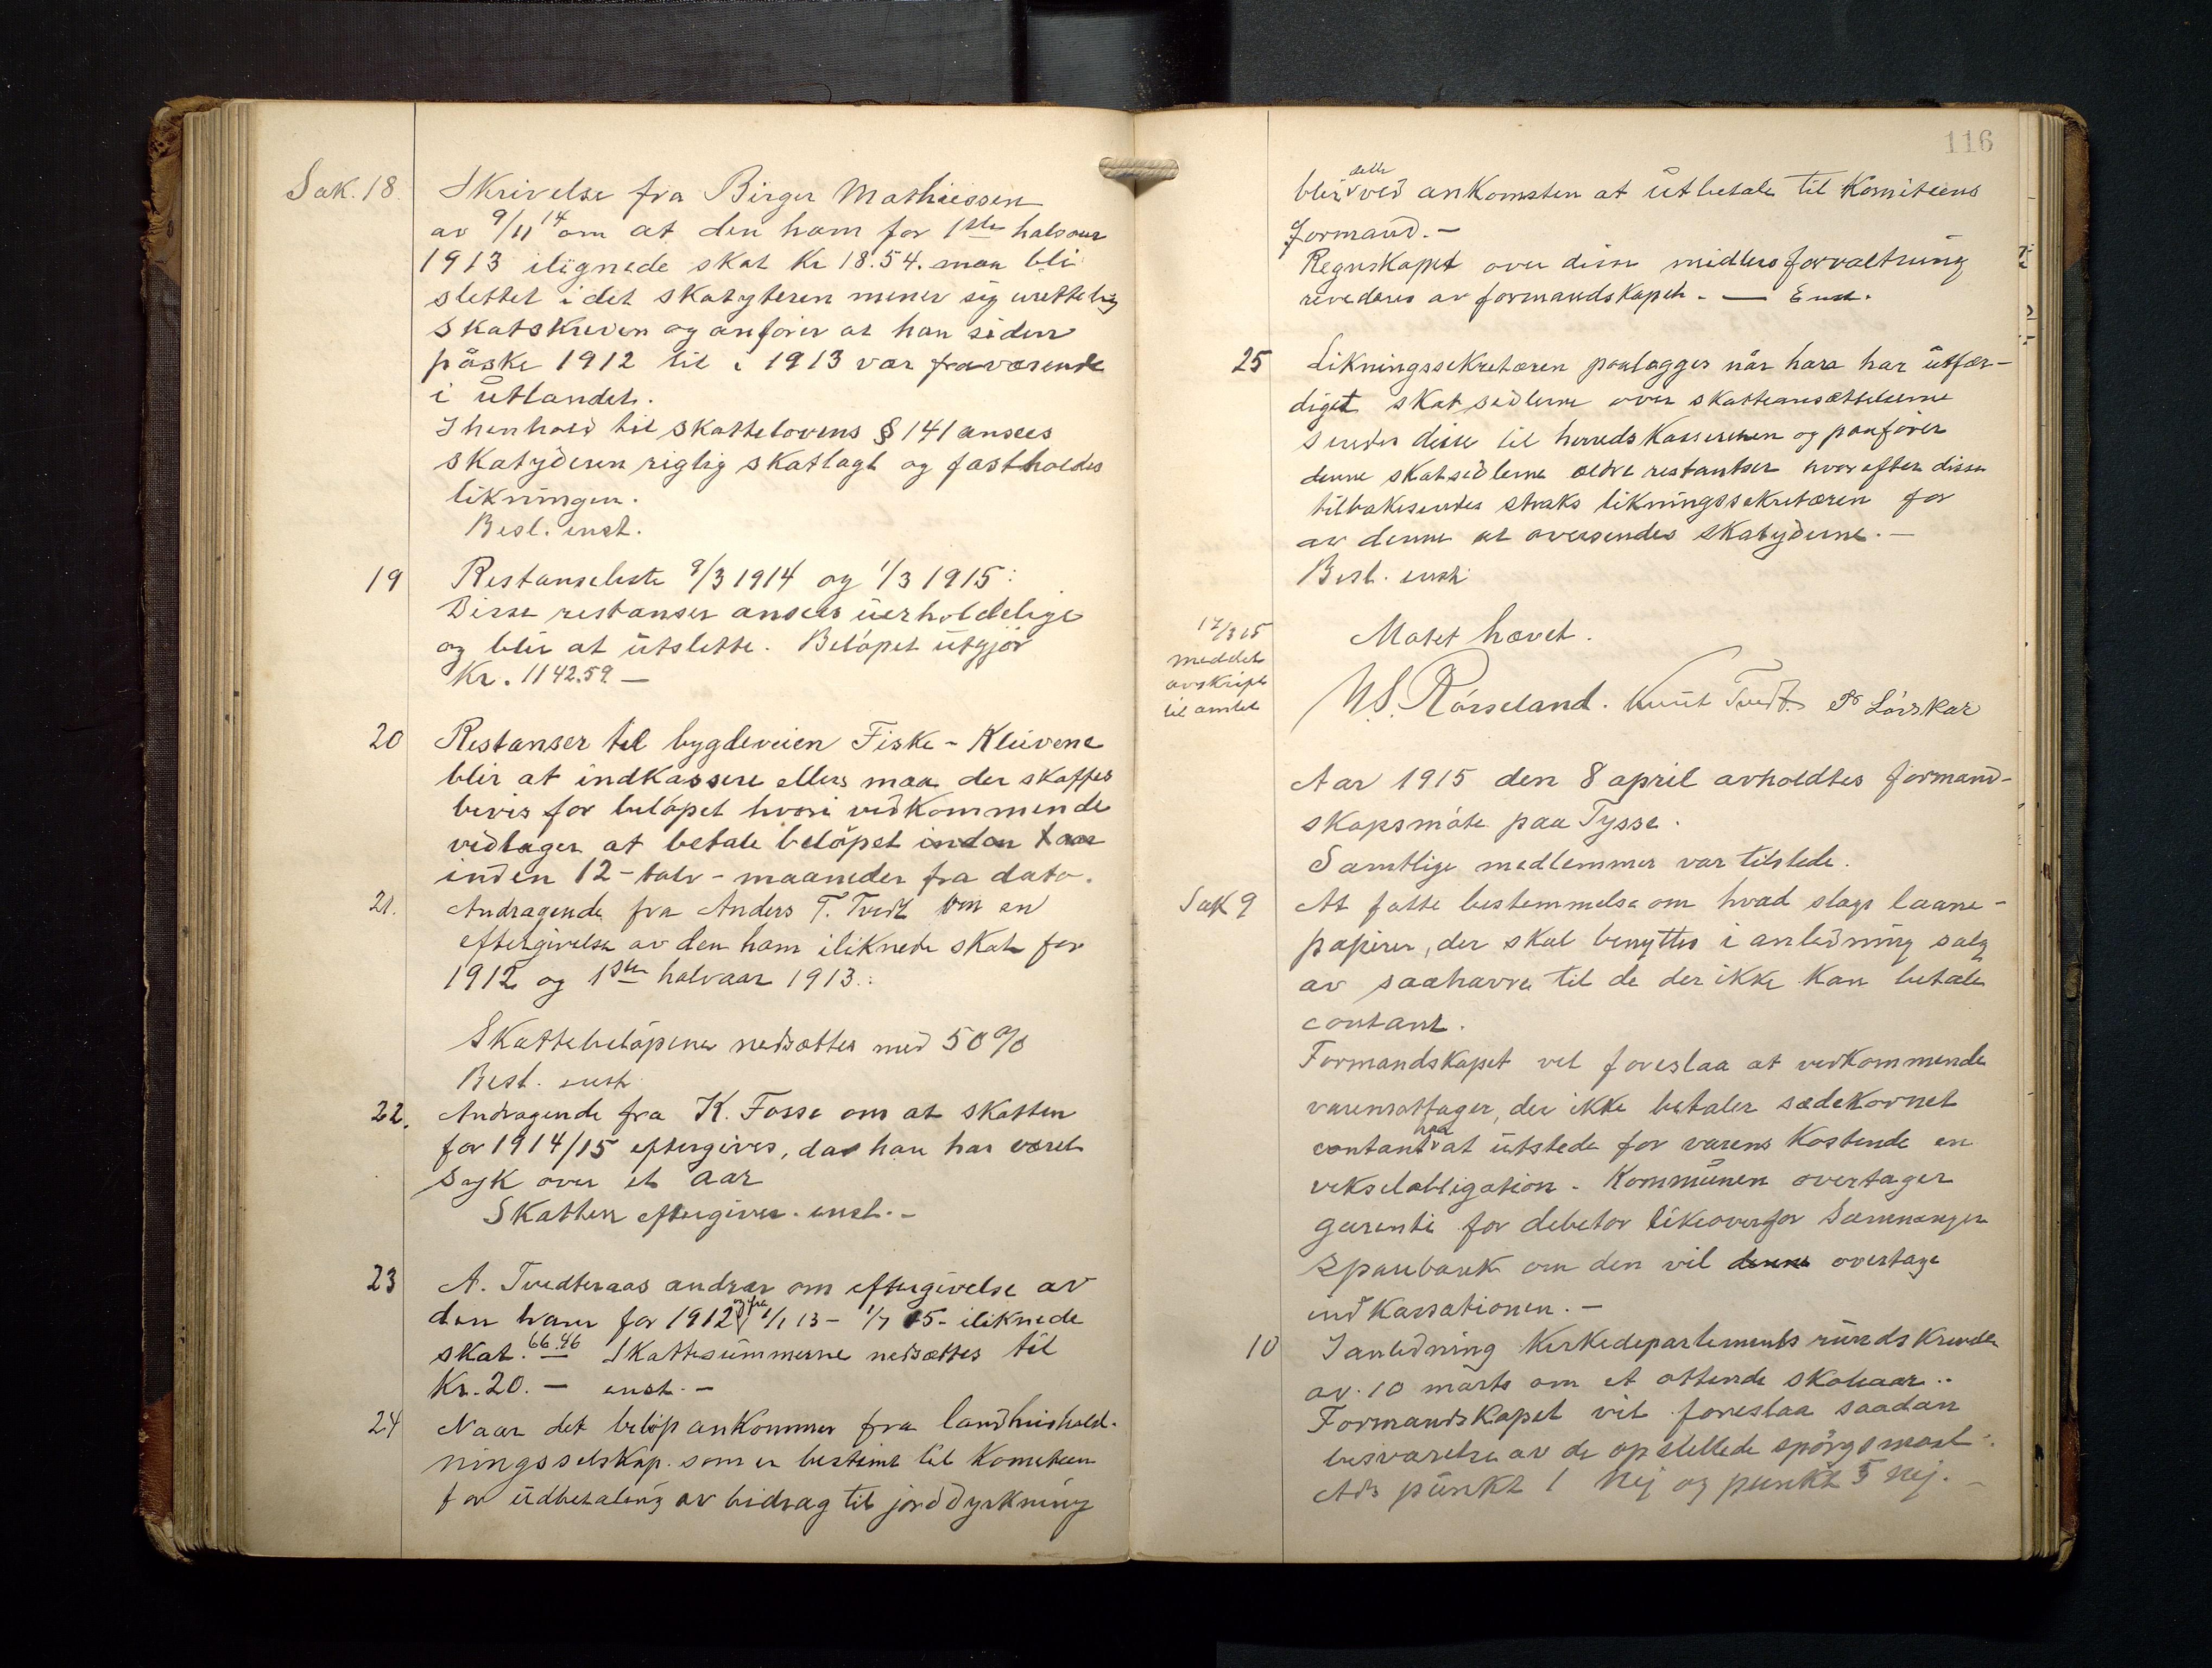 Sak. 18. Skrivelse fra Birger Mathiessen
av 9/11 14 om at den ham for 1ste halvaar
1913 ilignede skat Kr 18.54. maa bli
slettet i det skatyteren mener sig urettelig
skatskreven og anfører at han siden
påske 1912 til i 1913 var fraværende
i utlandet.
I henhold til skattelovens § 141 ansees
skatyderen rigtig skatlagt og fastholdes
likningen.
Besl. enst.
19 Restanseliste 9/3 1914 og 1/3 1915:
Disse restanser ansees uerholdelige
og blir at utslette. Beløpet utgjør
Kr. 1142.59 —
20 Restanser til bygdeveien Fiske - Kleivene
blir at indkassere ellers maa der skaffes
bevis for beløpet hvori vedkommende
vedtager at betale beløpet inden 1 aar
inden 12 - tolv - maaneder fra dato.
21. Andragende fra Anders T. Tvedt om en
eftergivelse av den ham iliknede skat for
1912 og 1ste halvaar 1913.:
Skattebeløpene nedsættes med 50%
Besl. enst.
22. Andragende fra K. Fosse om at skatten
for 1914/15 eftergives, da han har været
syk over et aar
Skatten eftergives. enst. -
23 A. Tvedteraas andrar om eftergivelse av
den ham for 1912 og fra 1/1 13 - 1/7 15 - iliknede
skat. 66.46 Skattesummerne nedsættes til
Kr. 20. — enst. -
24 Naar det beløp ankommer fra landhushold-
ningsselskap. som er bestimt til Kometeen
for udbetaling av bidrag til jorddyrkning
116
blir dette ved ankomsten at utbetale til Komiteens
formand. -
Regnskapet over disse midlers forvaltning
revederes av formandskapet. — Enst.
25 Likningssekretæren paalægges når hara har utfær-
diget skatsedlerne over skatteansættelserne
sender disse til herredskassereren og paafører
denne skatsedlerne ældre restantser hvorefter disse
tilbakesendes straks likningssekretæren for
av denne at oversendes skatyderne. —
Besl. enst.
17/3 15
meddelt
avskript
til amtet
Møtet hævet.
N. S. Rørseland. Knut Tvedt. P Løvskar
Aar 1915 den 8 april avholdtes formand-
skapsmøte paa Tysse.
Samtlige medlemmer var tilstede.
Sak 9 At fatte bestemmelse om hvad slags laane-
papirer, der skal benyttes i anledning salg
av saahavre til de der ikke kan betale
contant.
Formandskapet vil foreslaa at vedkommende
varemottager, der ikke betaler sædekornet
contant har at utstede for varens kostende en
vekselobligation. Kommunen overtager
garanti for debetor likeoverfor Samnanger
Sparebank om den vil denne overtage
indkassationen. —
10 I anledning Kirkedepartements rundskrivelse
av. 10 marts om et ottende skoleaar..
Formandskapet vil foreslaa saadan
besvarelse av de opstillede spørgsmaal:
Ads punkt 1 Nej og punkt 5 nej. -